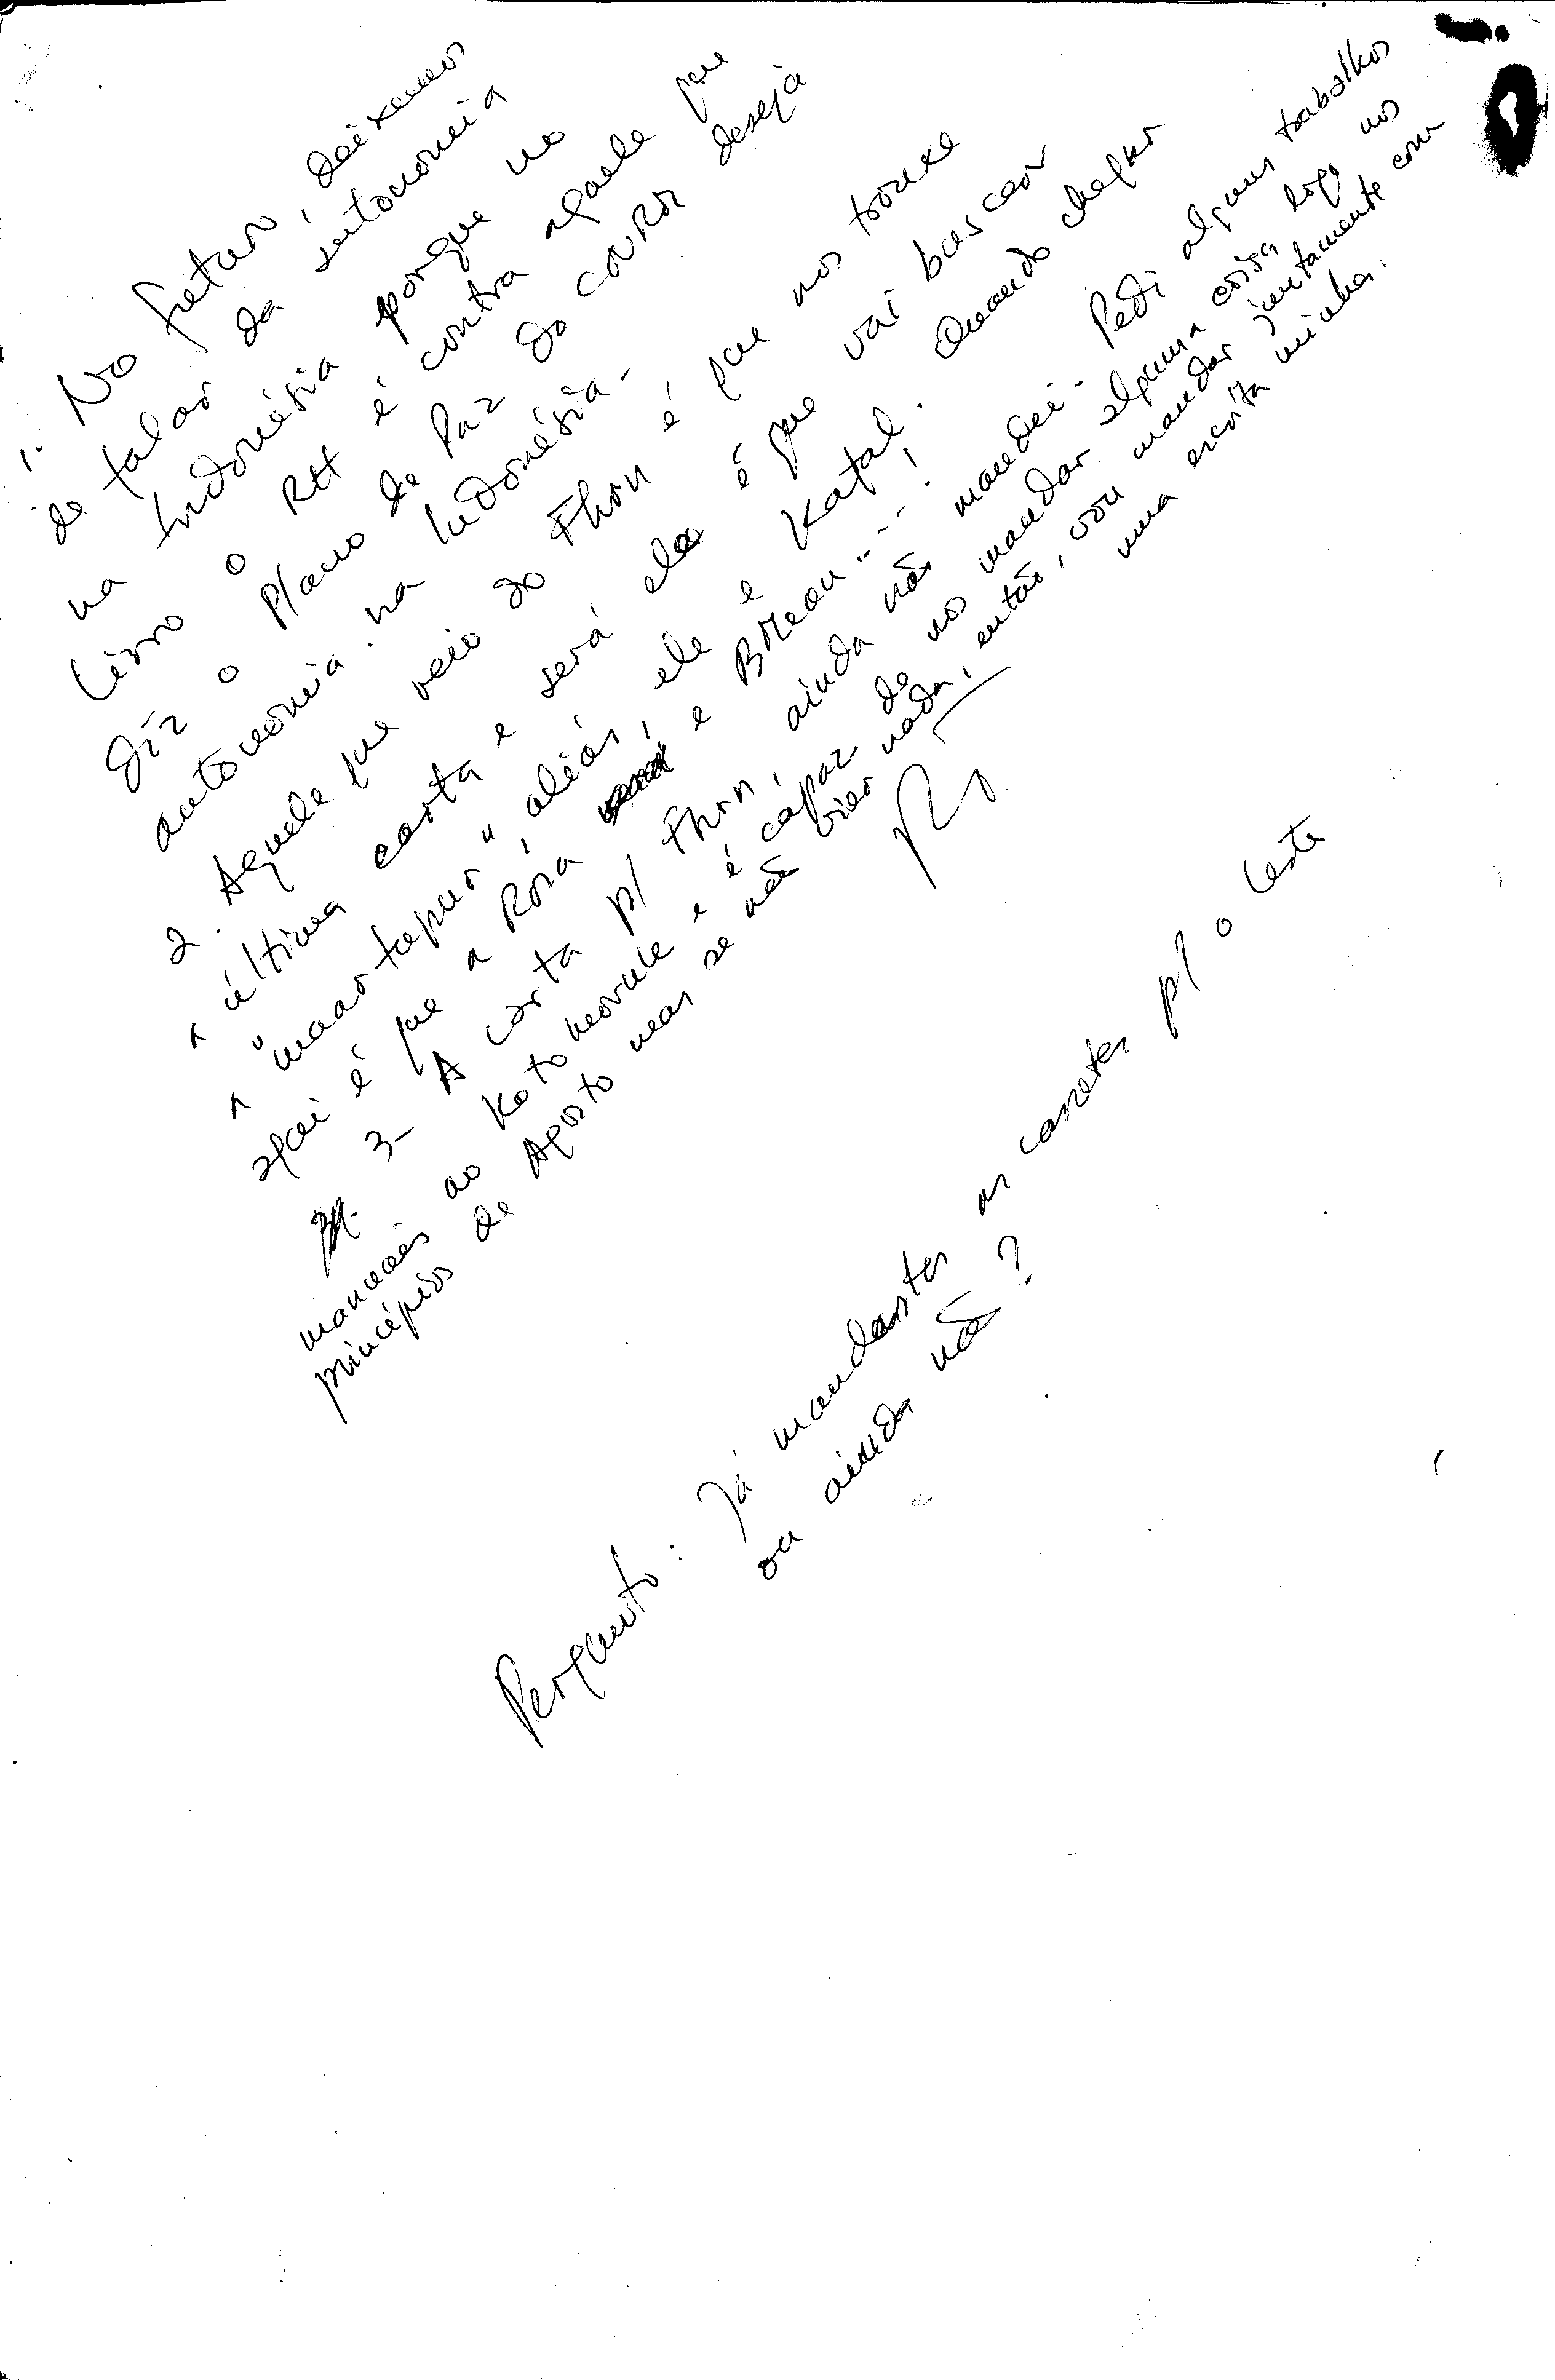 1. No futuro, deixemos
de falar da autonomia
na Indonésia porque no
livro o RH é contra aquele que
diz o Plano de Paz do CNRM deseja
autonomia na Indonésia.
2. Aquele que veio do Fhon é que nos trouxe
a última carta e será ele é que vai buscar
a "maartapur" aliás, ele é Katal. Quando chegar
aqui é que a Rosa e Bolean...!
3- A carta p/ Fhon, ainda não mandei. Pedi alguns trabalhos
manuais ao Ketomorale e é capaz de nos mandar alguma coisa logo nos
princípios de Agosto mas se não vier nada, então, vou mandar juntamente com
uma escrita minha.
Pergunto: Já mandaste as cassetes p/ o Leste
ou ainda não?